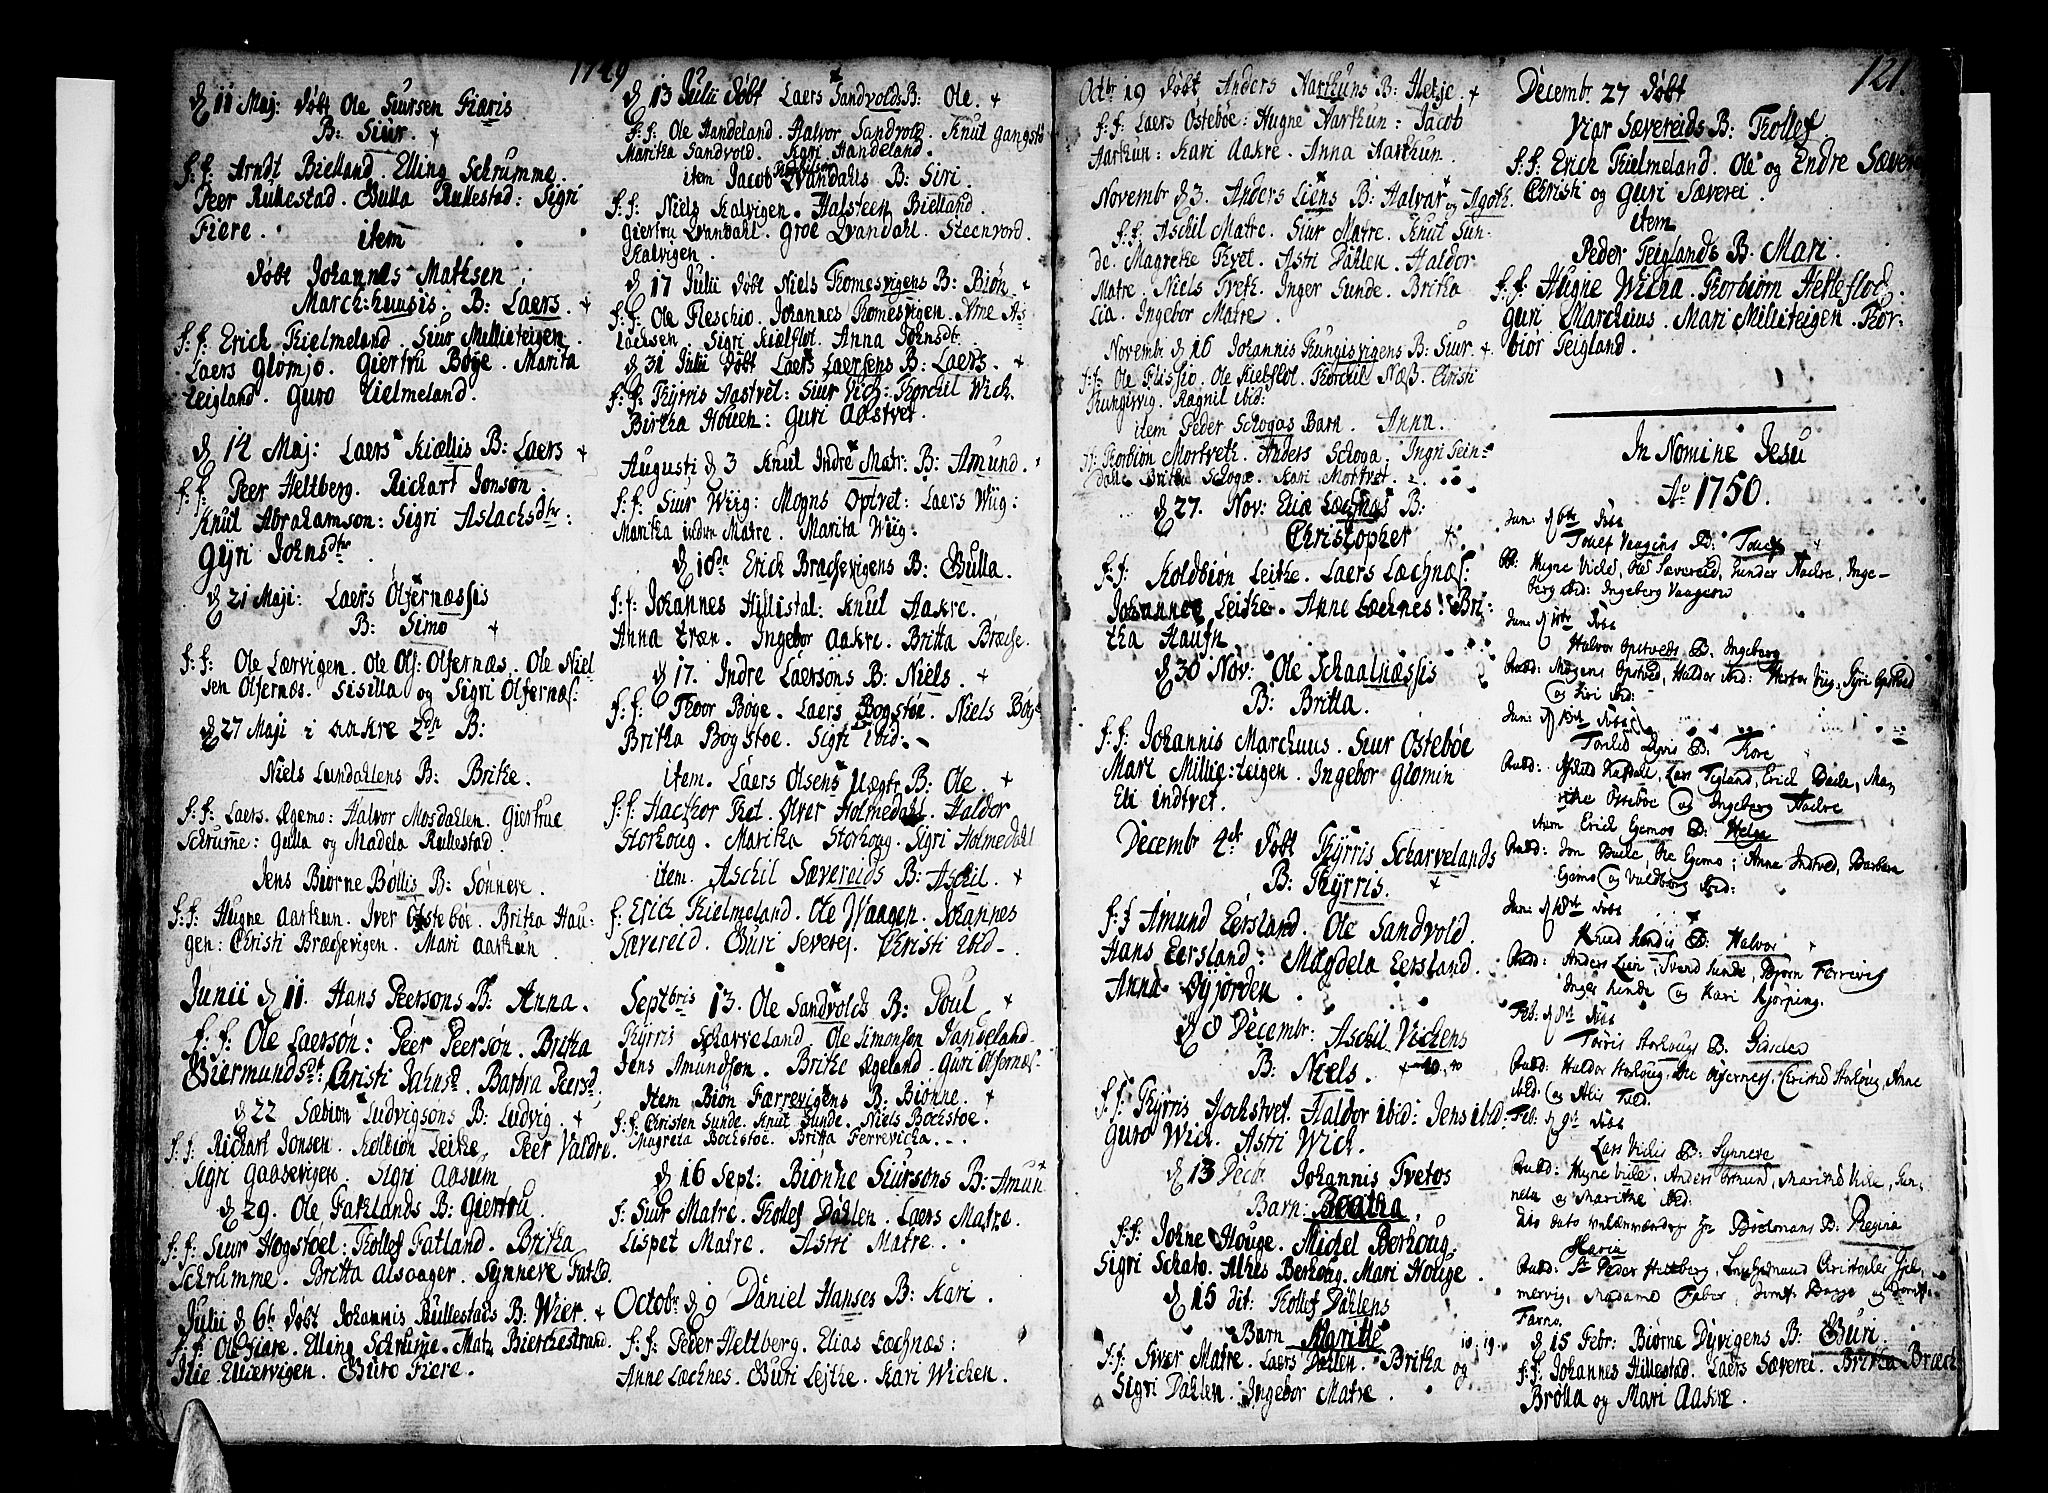 1749
d 11 Maj: døbt Ole Siursen Fiæris
B: Siur. +
f: f: Arndt Bielland. Elling Schrumme.
Peer Rullestad. Gulla Rullestad: Sigri
Fiere.
item
døbt Johannes Mathsen
Marchhuusis: B: Laers. +
f: f: Erich Tielmeland. Siur Millieteigen.
Laers Glomjo. Giertru Bøge. Marita
Teigland. Guro Tielmeland.
d 14 Maj: Laers Kiællis B: Laers +
f: f: Peer Heltberg. Richart Jonson.
Knut Abrahamson: Sigri Aslachsdtr:
Gyri Johnsdtr
d 21 Maji: Laers Olfernæssis
B: Simo +
f: f: Ole Lærvigen. Ole Ols: Olfernæs. Ole Niel-
sen Olfernæs. Sisilla og Sigri Olfernæs:
d 27 Maji i aakre 2dn B:
Niels Lundahlens B: Brithe.
f: f: Laers Ægemo: Halvor Mosdahlen. Giertrue
Schrume: Gulla og Madela Rullestad.
Jens Biørne Bøllis B: Sønneve.
f: f: Hugne Aarhun. Iver Østebøe. Britha Hau-
gen: Christi Bræchevigen. Mari Aarhun
Junii d 11. Hans Peersons B: Anna.
f: f: Ole Laersøn: Peer Peersøn. Britha
Giermundsdr Christi Jahnsd. Barbra Peersd.
d 22 Sæbiøn Ludvigsons B: Ludvig. +
f: f: Richart Jonsen. Kolbiøn Leithe. Peer Valdre.
Sigri Gaasevigen. Sigri Aasum
d 29. Ole Fatlands B: Giertru.
f: f: Siur Hogstøel: Tollef Fatland. Britha
Schrumme. Britta Alsaager. Synneve Fatld.
Julii d 6t døbt Johannis Rullestads B: Wier. +
f: f: Ole Fiare. Elling Schrume. Matz Bierchestrand.
Ilie Ellervigen. Guro Fiere.
d 13 Julii døbt Laers Sandvolds B: Ole. +
f: f: Ole Handeland. Halvor Sandvold. Knut Gangstø
Maritha Sandvold. Sigri Handeland.
item Jacob Qvandahls B: Siri.
f: f: Niels Kalvigen. Halsteen Bielland.
Giertru Qvandahl. Groe Qvandahl. Steenvord
Kalvigen.
d 17 Julii døbt Niels Tomesvigens B: Biøn. +
f: f: Ole Fleschio. Johannes Tomesvigen. Arne As-
lachsen. Sigri Kielflot. Anna Johnsdt.
d 31 Julii døbt Laers Laersens B: Laers. +
f: f: Tyrris Aastvet: Siur Vich: Torchil Wich.
Birtha Houch: Guri Aastvet.
Augusti d 3 Knut Indre Matr: B: Amund. +
f: f: Siur Wiig: Mogns Optvet: Laers Wiig:
Maritha indre Matre. Marita Wiig:
d 10dn Erich Bræchevigens B: Gulla.
f: f: Johannes Hillistal: Knut Aakre.
Anna træn. Ingebor Aakre. Britta Bræche.
d 17. Indre Laersons B: Niels. +
f: f: Thoor Bøge. Laers Bogstøe. Niels Bøge
Britha Bogstøe. Sigri ibid:
item. Laers Olsens Uægtr. B: Ole +
f: f: Hacthor Tvet. Olver Holmedahl. Haldor
Storhoug. Maritha Storhoug. Sigri Holmedahl
item. Aschil Sævereids B: Aschil. +
f: Erich Tielmeland. Ole Waagen. Johannes
Sævereid. Guri Severej. Christi ibid.
Septbris 13. Ole Sandvolds B: Poul +
Tyrris Scharveland. Ole Simonson Handeland
Jens Amundsøn. Brithe Ægeland. Guri Olfernæs
Item Biøn Færrevigens B: Biønne. +
f: f: Christen Sunde. Knut Sunde. Niels Bochstøe.
Magreta Bochstøe. Britta Ferrevicha.
d 16 Sept: Biønne Siursons B: Amun
f: Siur Matre. Tollef Dahlen. Laers Matre.
Lispet Matre. Astri Matre.
Octobr d 9 Daniel Hanses B: Kari.
f: f: Peder Heltberg. Elias Lechnæs:
Anne Læchnes. Guri Lejthe. Kari Wichen.
121
Octbr 19 døbt Anders Aarhuns B: Helje. +
f: f: Laers Østebøe: Hugne Aarhun: Jacob
Aarhun: Kari Aakre. Anna Aarhun.
Novembr d 3. Anders Liens B: Halvar og Agoth.
f: f: Aschil Matre. Siur Matre. Knut Sun-
de. Magrethe Tvet. Astri Dahlen. Haldor
Matre. Niels Treth. Inger Sunde. Britha
Lia. Ingebor Matre.
Novembr d 16 Johannis Tungisvigens B: Siur. +
f: f: Ole Flissio. Ole Kielfflot. Torchil Næss. Christi
Tungisvig. Ragnil ibid:
item Peder Schogas Barn. Anna.
f: Torbiøn Mortveth. Anders Schoga. Ingri Sein-
dale Britha Schogæ. Kari Mortvet.
d 27. Nov: Eliæ Læchnæs B:
Christopher +
f: f: Koldbiøn Leithe. Laers Læchnæs:
Johannes Leithe. Anne Læchnes: Bri-
tha Haufn
d 30 Nov: Ole Schaalnæssis
B: Britta.
f: f: Johannis Marchuus. Siur Østebøe
Mari Millie-teigen. Ingebor Glomin
Eli indtvet.
Decembr 4de døbt Tyrris Scharvelands
B: Tyrris. +
f: f Amund Eersland. Ole Sandvold.
Hans Eersland: Magdela Eersland.
Anna Øyjorden
d 8 Decembr: Aschil Vichens
B: Niels.
f: f: Tyrris Jochstvet. Haldor ibid: Jens ibid:
Guro Wich. Astri Wich.
d 13 Decb: Johannis Tvetos
Barn: Beatha.
f: f: Johne Houge. Michel Berhoug.
Sigri Schato. Alhes Berhoug. Mari Houge.
d 15 dit: Tollef Dahlens
Barn Marithe
f: f: Siver Matre. Laers Dahlen. Britha og
Sigri Dahlen. Ingebor Matre.
Decembr 27 døbt
Viar Sævereids B: Tollef.
f: f: Erich Tielmeland. Ole og Endre Sævere
Christi og Guri Sæverei.
item
Peder Teiglands B: Mari.
f: f: Hugne Wicha. Torbiørn Hetteflod.
Guri Marchuus. Mari Millieteigen. Tor-
biør Teigland.
In Nomine Jesu
Ao 1750.
Jan: d 6te døbt
Tollef Vaagens B: Tollef +
ff: Hugne Viche, Ole Sævereid, Gunder Aachre, Inge-
berg ibid: Ingeberg Vaagene
Jan: d døbt
Halvor Opstveds B: Ingeberg
Fadd: Mogens Opstved, Haldor ibid: Morten Viig, Gyri Opstved
og Siri ibd:
Jan: d døbt
Torkild B: Tore
Fadd: Lars Teigland, Erich Mar-
ithe Østebøe og Ingeberg Aachre
item Erich Egemos B: Helga
Fadd: Jon Ole Egemo, Anne Indtved, Barbra
Egemo og Valdborg ibid:
Jan: d 18de døbt
Knud Sundes B: Halvor
Fadd: Anders Lien, Svend Sunde, Bjørn Ferrevig
Inger Sunde og Kari Kjørping.
Feb: d 8de døbt
Torris Storhougs B:
Fadd: Haldor Storhoug, Ole Christie Storhoug, Anne
ibid. og
Feb: d 9de døbt
Lars Viches B: Synneve
Fadd: Hugne Viche, Anders Maritha Viche, Gun-
nela og Marithe ibd:
dito dato Hr Bødtmans B: Regina
Maria
Fadd: Sr Peder Heltberg, Christopher Giel-
mervig, Madame Faber, Bagge og Dorothe
Farno.
d 15 Febr: Biørne Dyvigens B: Guri.
f: f: Johannes Hillestad. Laers Sæverei. Britha Bræch
Brølla og Mari Aakre.